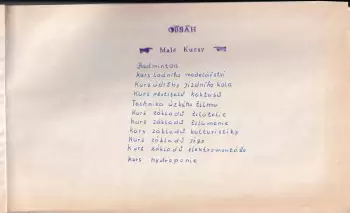 OBSAH
Malé Kursy
Badminton
Kurs lodního modelářství
Kurs údržby jízdního kola
Kurs pěstitelů kaktusů
Technika úzkého filmu
Kurs základů filatelie
Kurs základů šlúmanie
Kurs základů kulturistiky
Kurs základů jógo
Kurs základů elektromontáže
kurs hydroponie